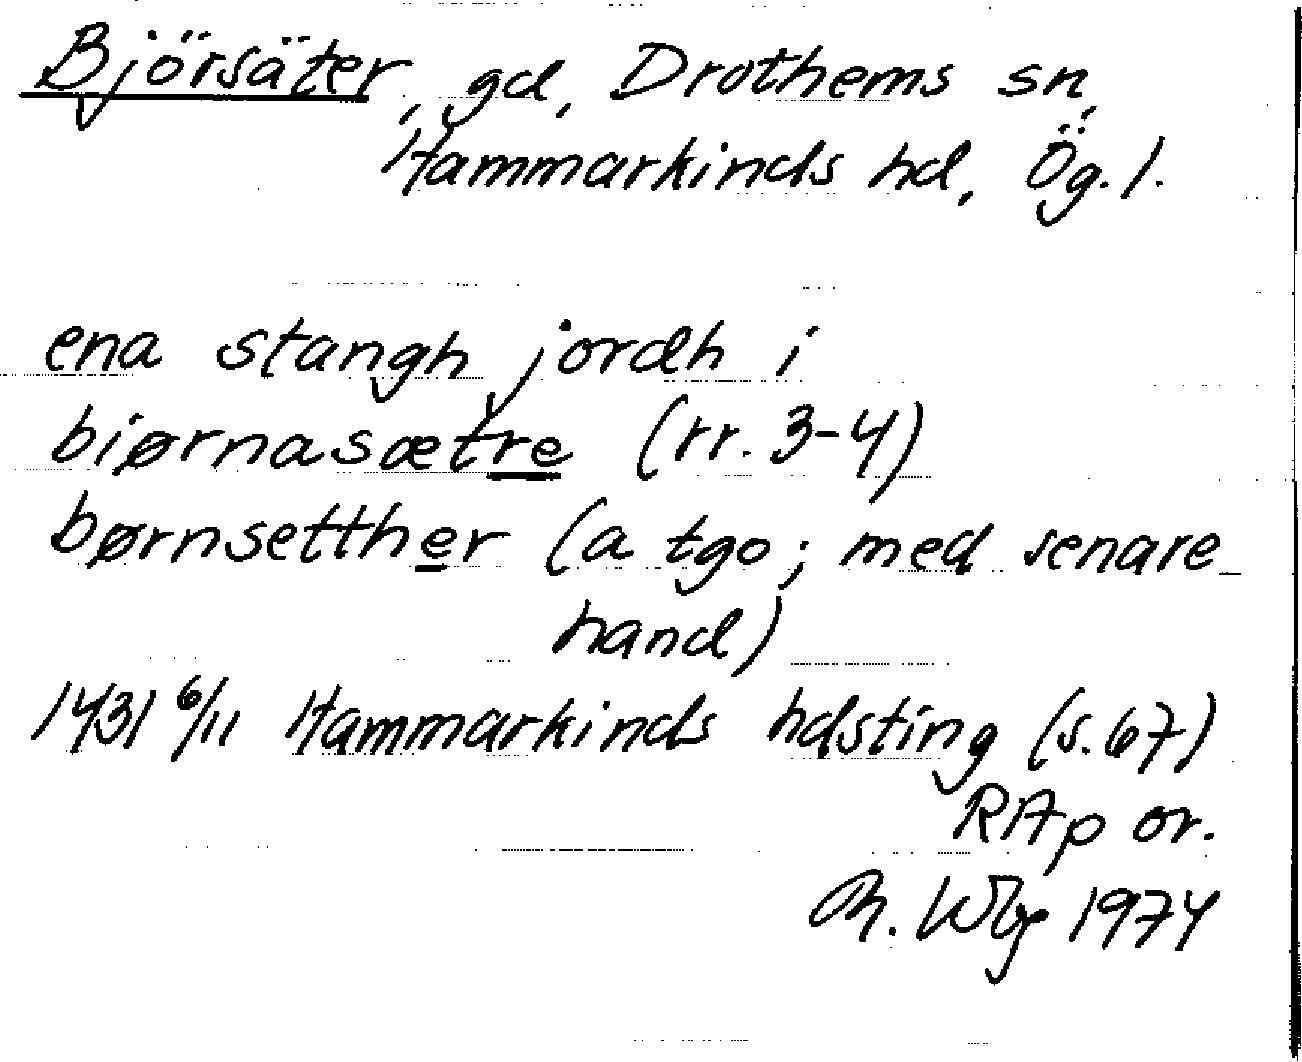 Björsäter, gd, Drothems sn,
Hammarkinds hd, Ög. l.
ena stangh jordh i
biørnasætre (rr. 3-4)
børnsetther (a tgo; med senare
hand)
1431 6/11 Hammarkinds hdsting (s. 67)
RAp or.
Wbg 1974